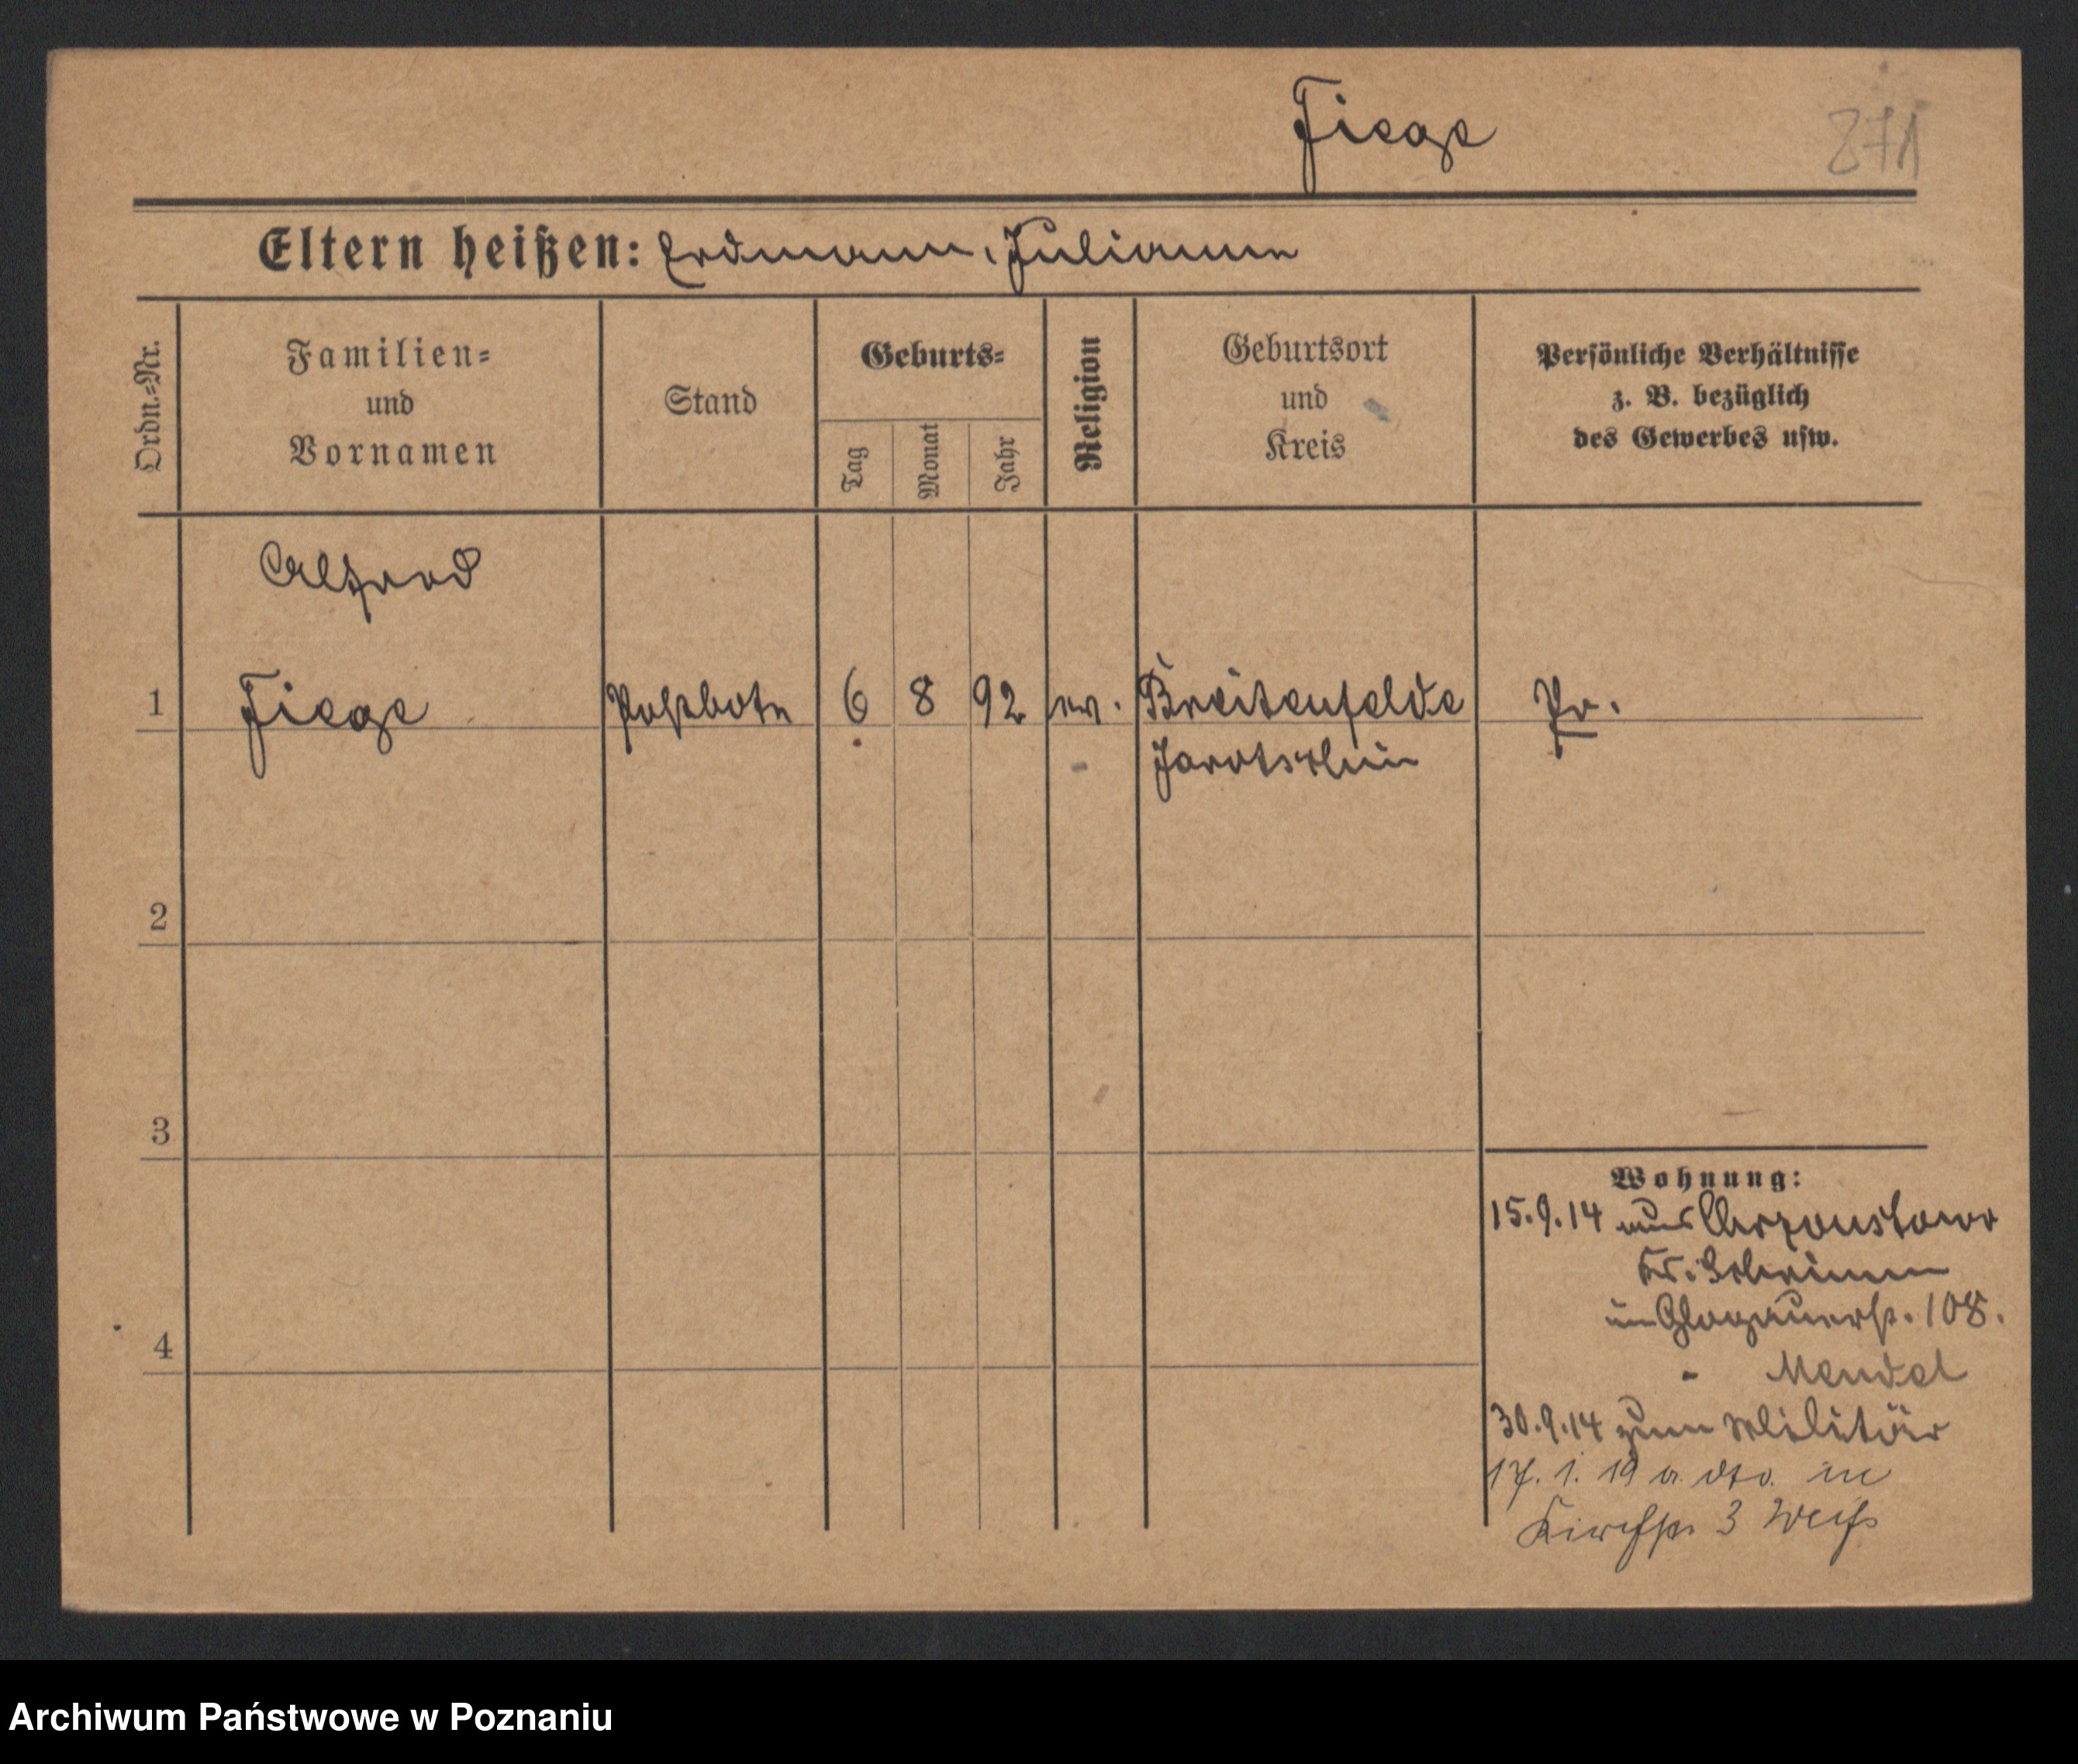 Fiege
271
Eltern heißen: Erdmann, Julianna
Ordn.-Nr.
Familien-
und
Vornamen
Stand
Geburts-
Tag
Monat
Jahr
Religion
Geburtsort
und
Kreis
Persönliche Verhältnisse
z. B. bezüglich
des Gewerbes usw.
Alfred
1 Fiege Postbote 6 8 92 ev. Breitenfelde Pr.
Jarotschin
2
3
4
Wohnung:
15.9.14 aus
Kr. Schrimm
in Glogauerstr. 108.
- Mendel
30.9.14 zum Militär
17. 1. 19 a. dto. in
Kirchstr. 3 Weiß
Archiwum Państwowe w Poznaniu